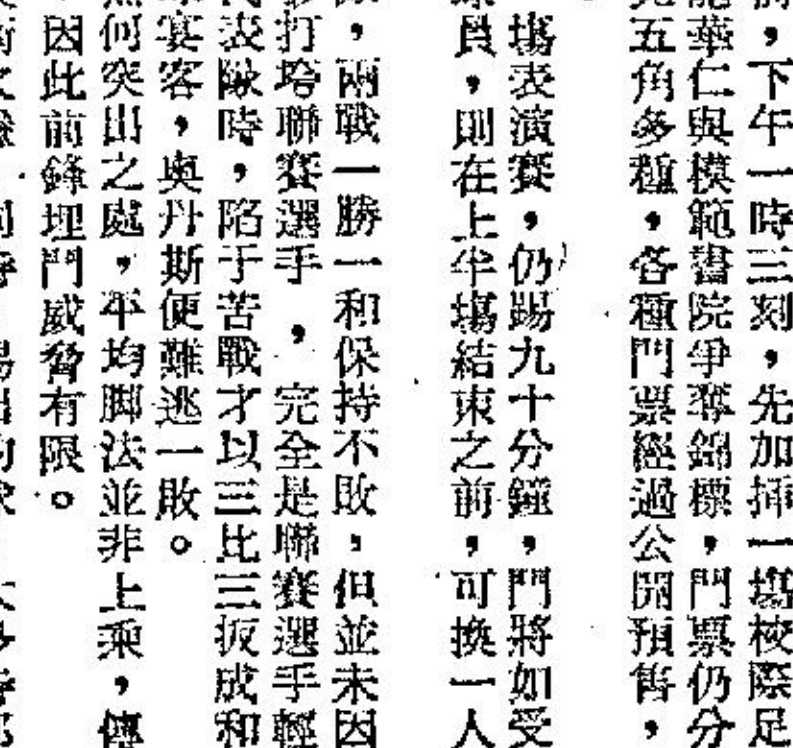 ，下午一時三刻，先加插一塲校際足
華仁與模範書院爭奪錦標，門票仍分
五角多種，各種門票經過公開預售，
塲表演賽，仍踢九十分鐘，門將如受
員，則在上半塲結束之前，可換一人
，兩戰一勝一和保持不敗，但並未因
打垮聯賽選手，完全是聯賽選手輕
表隊時，陷于苦戰才以三比三扳成和
宴客，奥丹斯便難逃一敗。
何突出之處，平均脚法並非上乘，傳
因此前鋒埋門威脅有限。